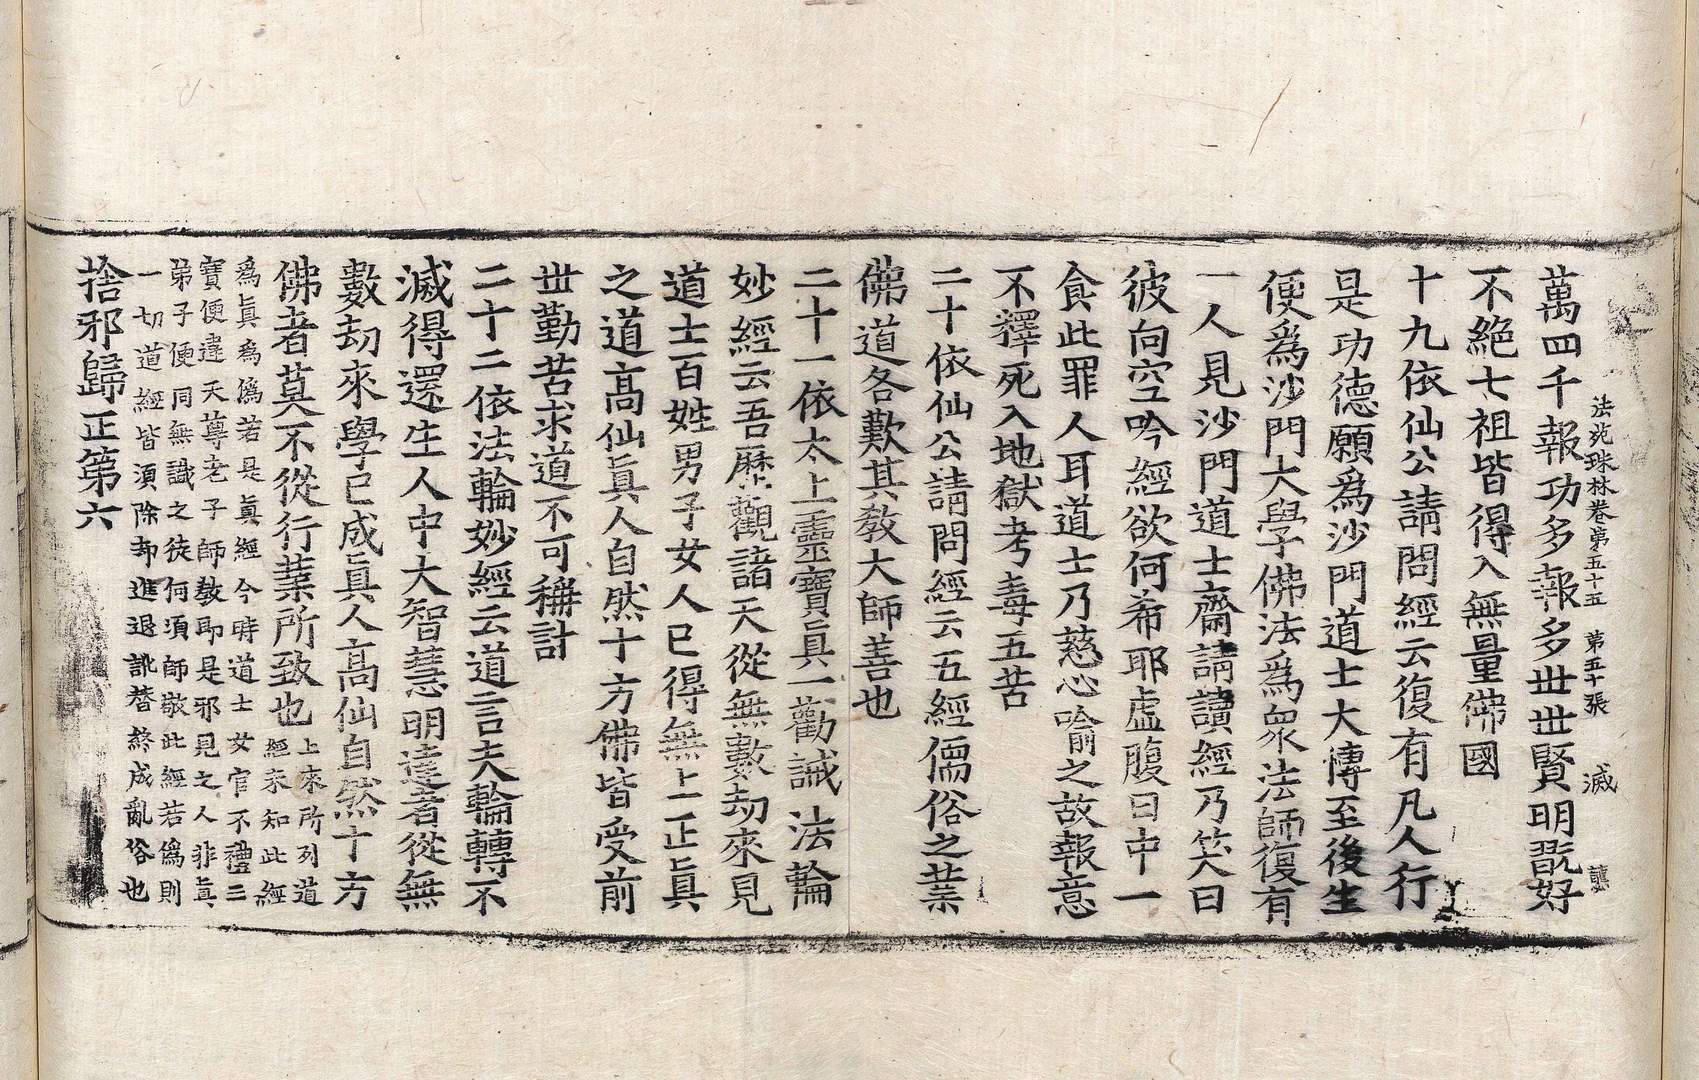 法苑珠林卷第五十五　第五十張　滅　龔
萬四千報功多報多世世賢明翫好
不絕七祖皆得入無量佛國
十九依仙公請問經云復有凡人行
是功德願爲沙門道士大博至後生
便爲沙門大學佛法爲衆法師復有
一人見沙門道士齋請讀經乃笑曰
彼向空吟經欲何希耶虛腹日中一
食此罪人耳道士乃慈心喻之故報意
不釋死入地獄考毒五苦
二十依仙公請問經云五經儒俗之業
佛道各歎其敎大師善也
二十一依太上靈寶眞一勸誡法輪
妙經云吾歷觀諸天從無數劫來見
道士百姓男子女人已得無上正眞
之道高仙眞人自然十方佛皆受前
世勤苦求道不可稱計
二十二依法輪妙經云道言夫輪轉不
滅得還生人中大智慧明達者從無
數劫來學已成眞人高仙自然十方
佛者莫不從行業所致也上來所列道
經未知此經
爲眞爲僞若是眞經今時道士女官不禮三
寶便違天尊老子師敎即是邪見之人非眞
弟子便同無識之徒何須師敬此經若僞則
一切道經皆須除却進退訛替終成亂俗也
捨邪歸正第六